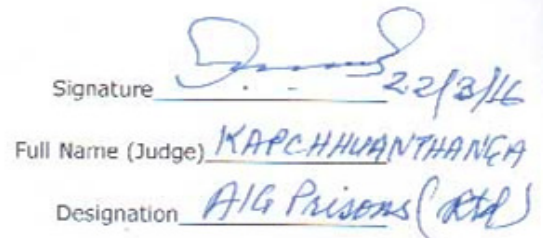 Signature 22/3/16
Full Name (Judge) KAPCHHUANTHANGA
Designation AIG Prisons (Rtd)